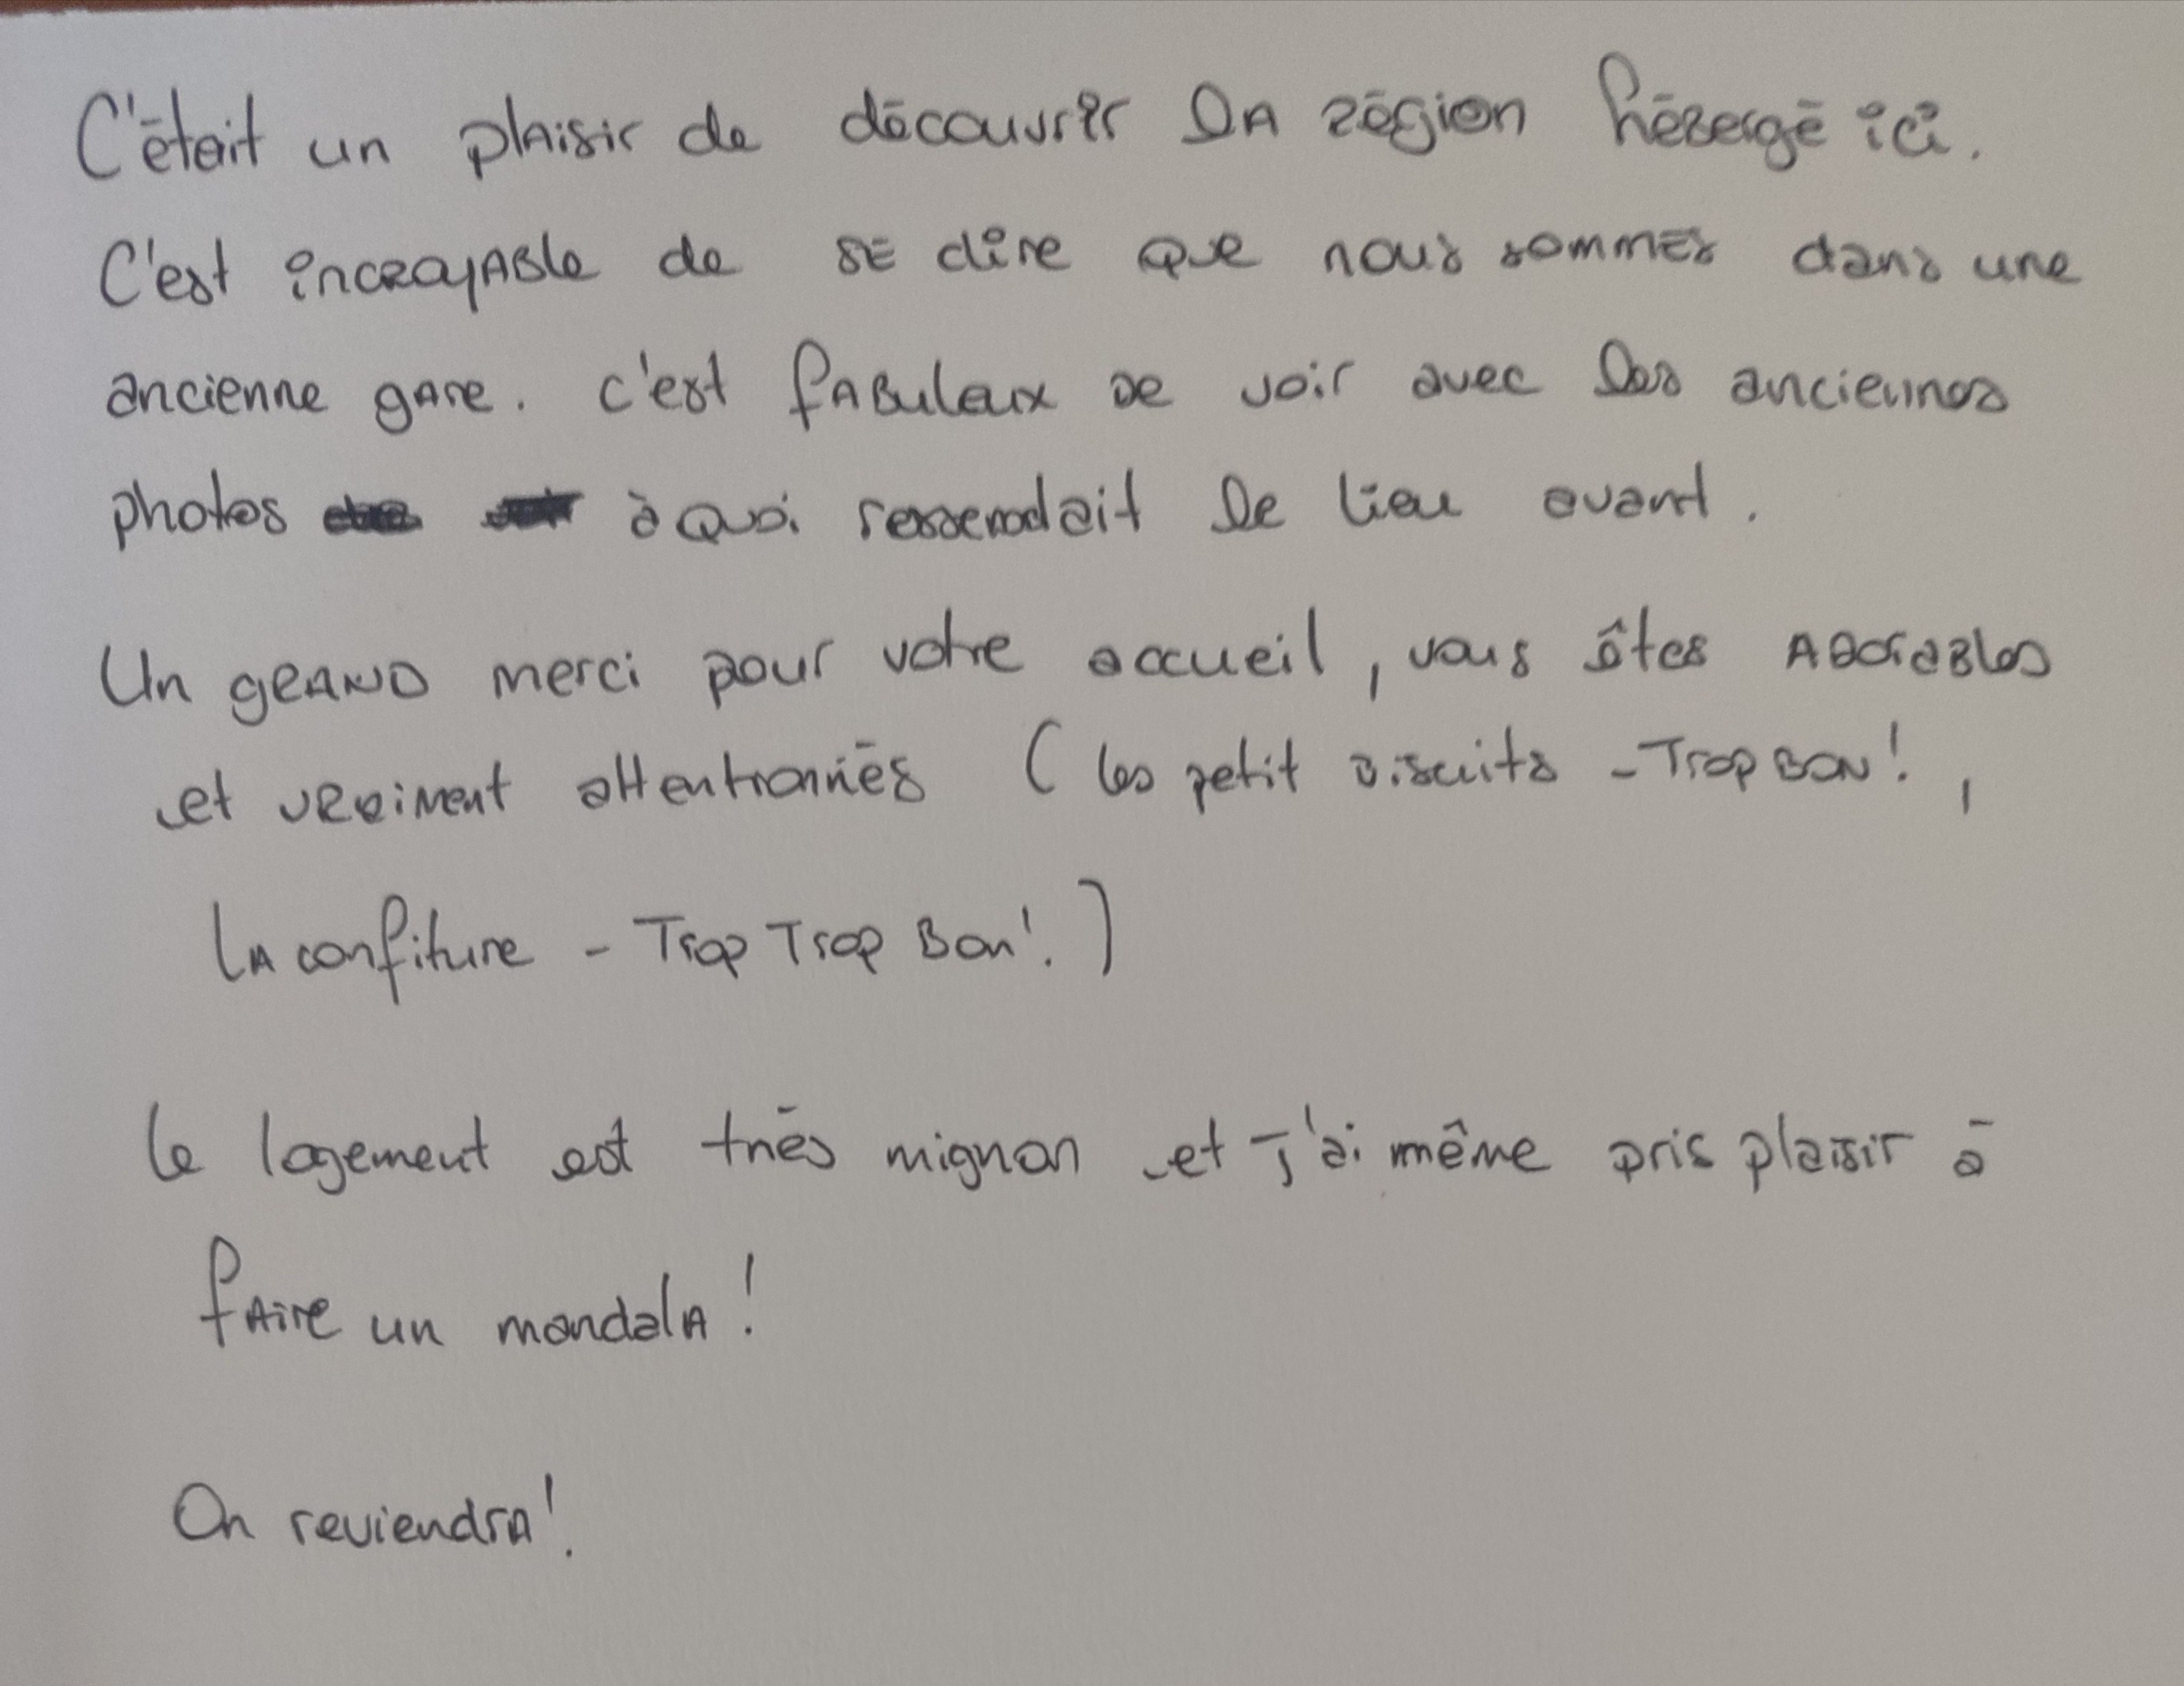 C'était un plaisir de découvrir la région hébergé ici.
C'est incroyable de se dire que nous sommes dans une
ancienne gare. c'est fabuleux de voir avec les anciennes
photos à quoi ressemblait le lieu avant.
Un grand merci pour votre accueil, vous êtes adorables
et vraiment attentionnés (les petit biscuits - Trop Bon!,
la confiture - Trop Trop Bon!)
Le logement est très mignon et j'ai même pris plaisir à
faire un mandala!
On reviendra!